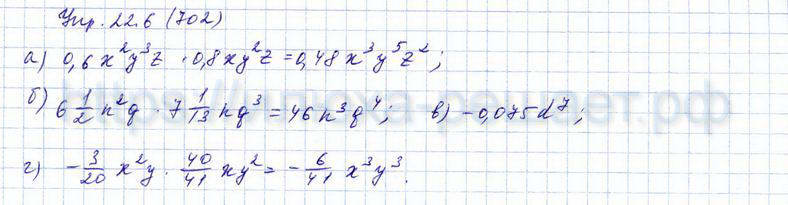 Упр. 22.6 (702)
а) 0,6x²y³z · 0,8xy²z = 0,48x³y⁵z²;
б) 6 1/2 n²q · 7 1/13 nq³ = 46n³q⁴; в) -0,075d⁷;
г) -3/20 x²y · 40/41 xy² = -6/41 x³y³.